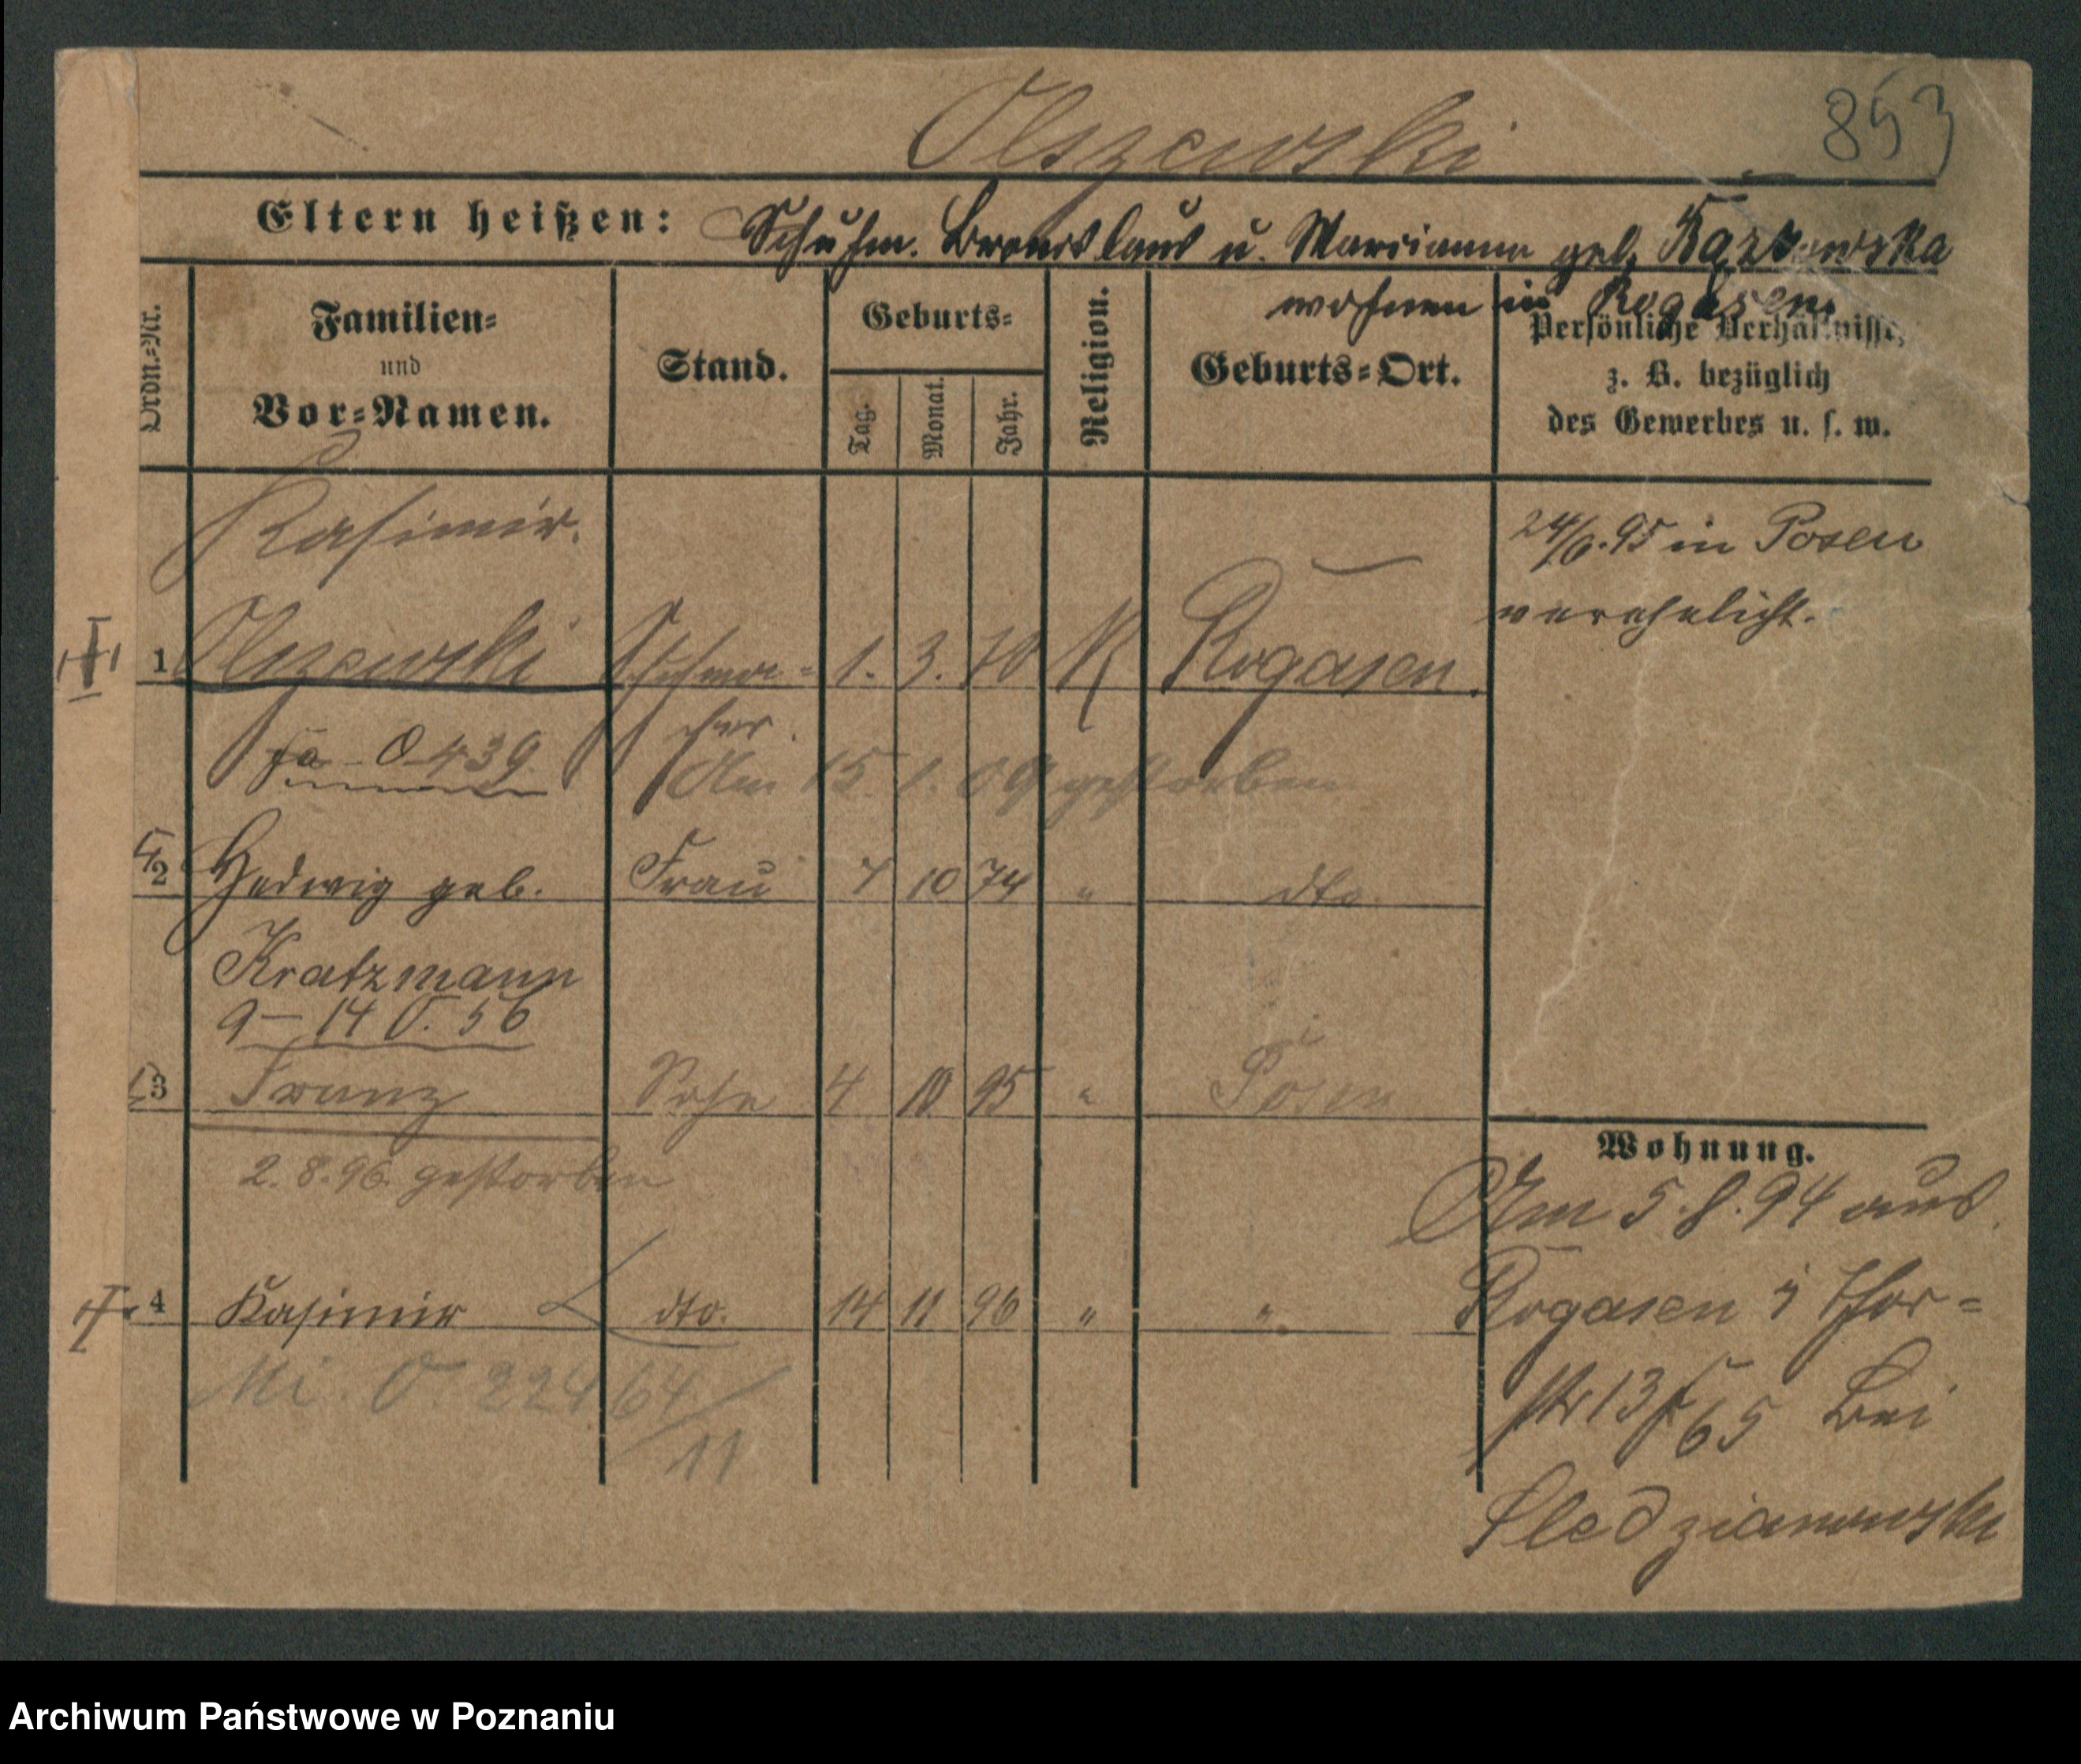 Olszewski
853
Eltern heißen: Schuhm. Bronislaus u. Marianna geb.
wohnen in Rogasen
Ordn.-Nr.
Familien-
und
Vor-Namen.
Stand.
Geburts-
Tag.
Monat.
Jahr.
Religion.
Geburts-Ort.
Persönliche Verhältnisse,
z. B. bezüglich
des Gewerbes u. s. w.
Kasimir.
24/6.95 in Posen
verehelicht.
1 Olszewski Schuhma- 1. 3. 70 K Rogasen.
cher.
O 439
Am 15. 1. 09 gestorben
2 Hedwig geb. Frau 7 10 74 " dto.
Kratzmann
9 - 14 O. 56
3 Franz Sohn 4 10 95 " Posen
2. 8. 96. gestorben
4 Kasimir dto. 14 11 96 " "
Mi. O. 224 64/11
Wohnung.
Am 5. 8. 94 aus
Rogasen Thor-
str 13 65 bei
Sledzianowski
Archiwum Państwowe w Poznaniu